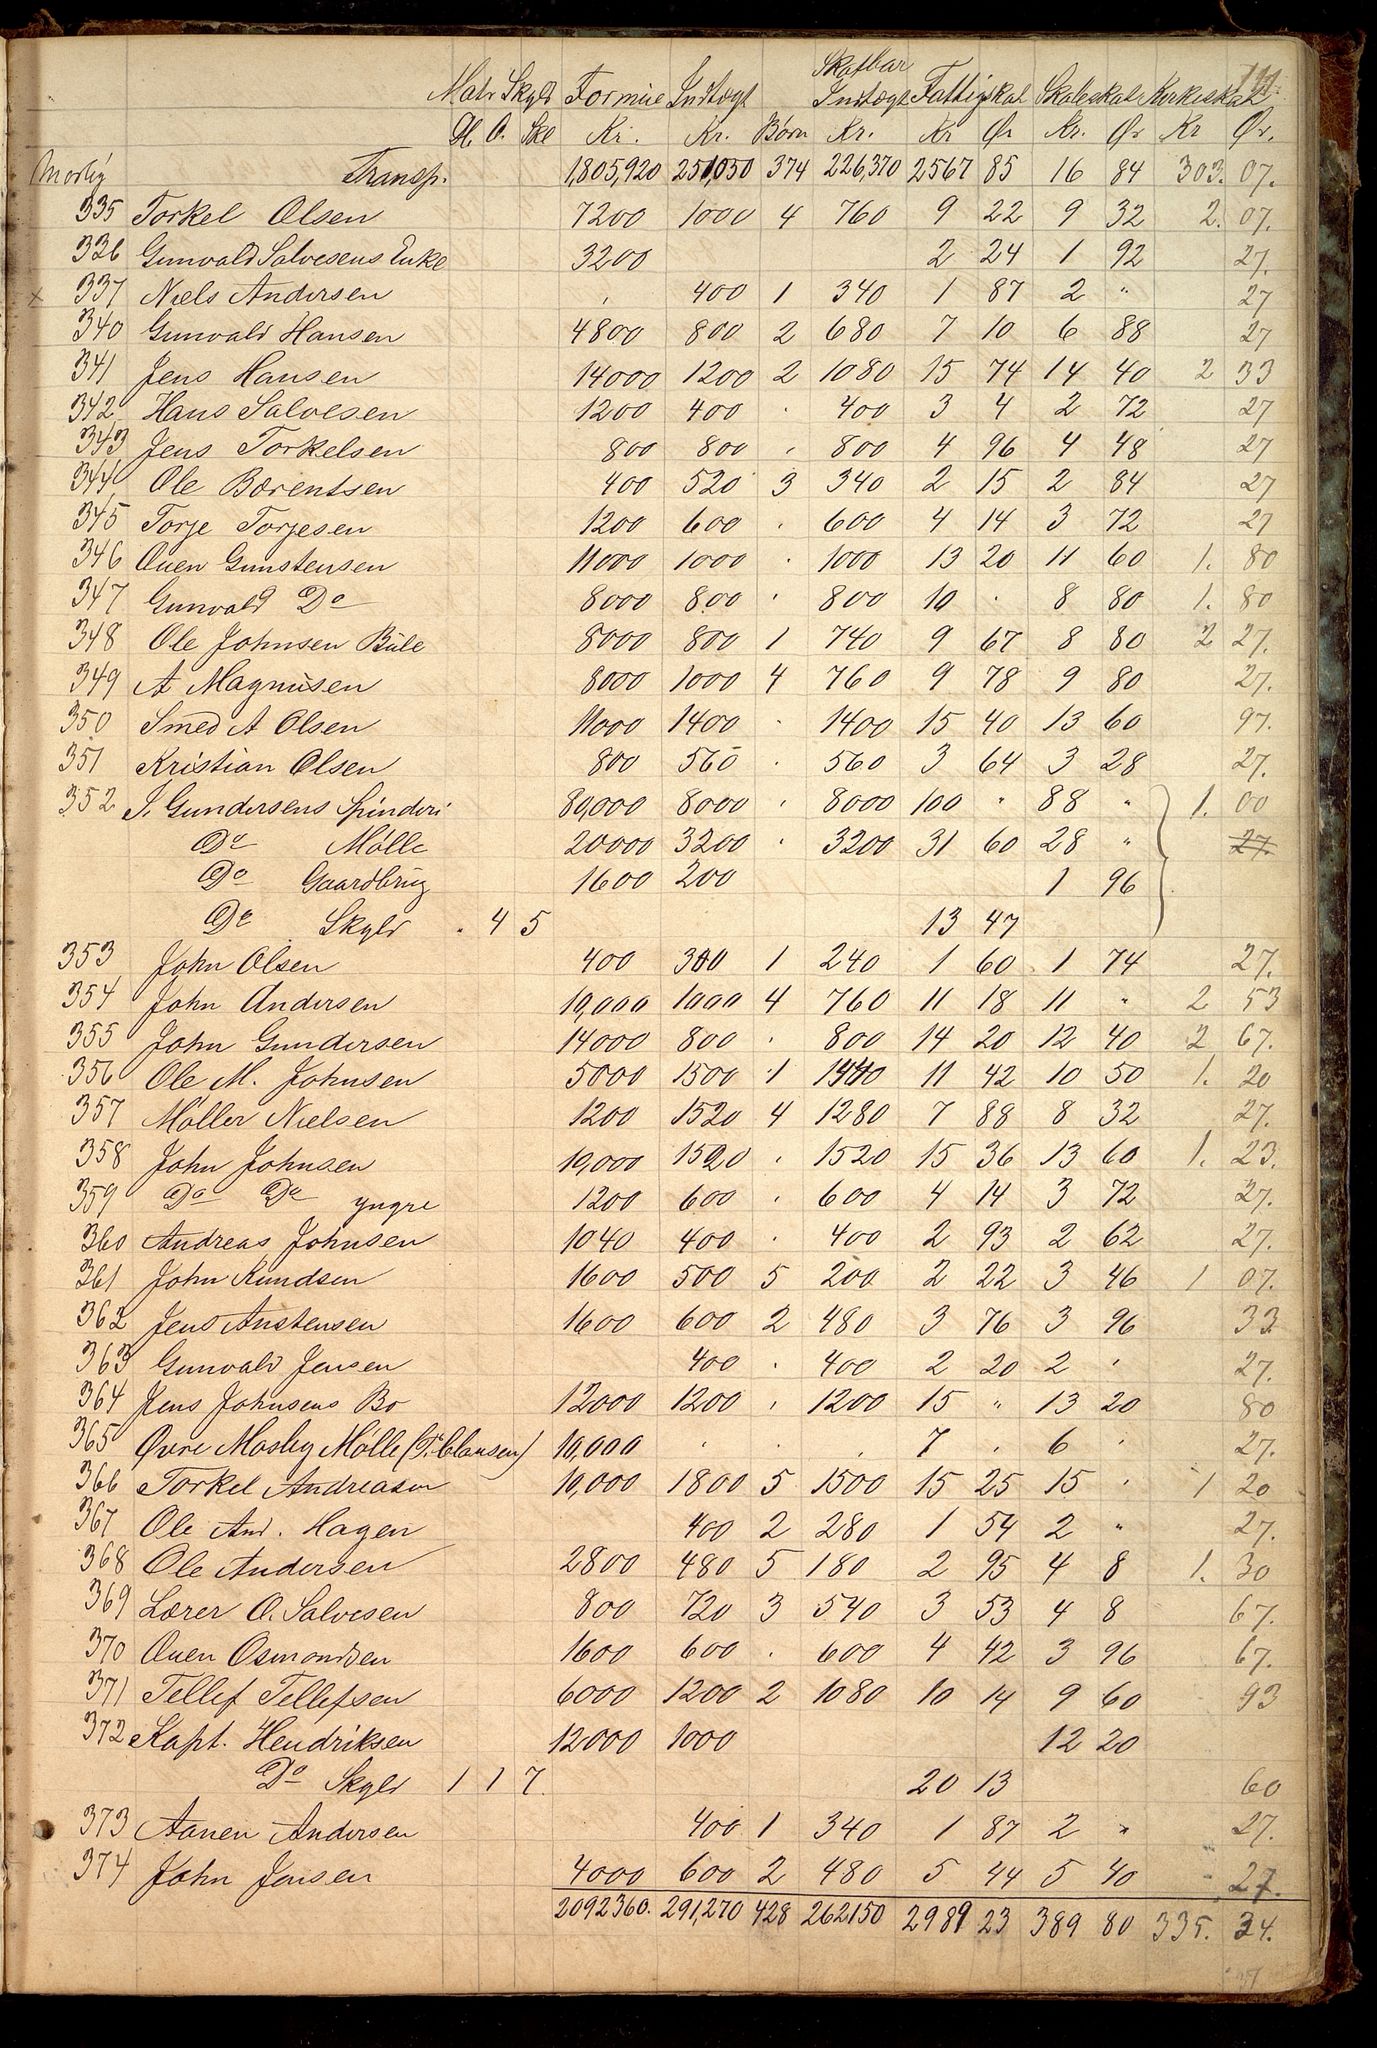 111.
Matr Skyld Formue Indtægt Skatbar Indtægt Fattigskat Skoleskat Kirkeskat
Dl. O. Skl Kr. Kr. Børn Kr. Kr Ør Kr. Ør Kr Ør.
Mosby Transp. 1,805,920 251,050 374 226,370 2567 85 16 84 303. 07.
335 Torkel Olsen 7200 1000 4 760 9 22 9 32 2. 07.
336 Gunvald Salvesens Enke 3200 2 24 1 92 27.
x 337 Niels Andersen . 400 1 340 1 87 2 " 27
340 Gunvald Hansen 4800 800 2 680 7 10 6 88 27
341 Jens Hansen 14000 1200 2 1080 15 74 14 40 2 33
342 Hans Salvesen 1200 400 . 400 3 4 2 72 27
343 Jens Torkelsen 800 800 . 800 4 96 4 48 27
344 Ole Bærentsen 400 520 3 340 2 15 2 84 27
345 Torje Torjesen 1200 600 . 600 4 14 3 72 27
346 Ouen Gunstensen 11000 1000 . 1000 13 20 11 60 1. 80
347 Gunvald Do 8000 800 . 800 10 . 8 80 1. 80
348 Ole Johnsen Bule 8000 800 1 740 9 67 8 80 2 27.
349 A Magnusen 8000 1000 4 760 9 78 9 80 27.
350 Smed A Olsen 11000 1400 . 1400 15 40 13 60 97.
351 Kristian Olsen 800 560 . 560 3 64 3 28 27.
352 J. Gundersens Spinderi 80,000 8000 . 8000 100 " 88 " 1. 00
Do Mølle 20000 3200 . 3200 31 60 28 " 27.
Do Gaardbrug 1600 200 1 96
Do Skyld . 4 5 13 47
353 John Olsen 400 300 1 240 1 60 1 74 27.
354 John Andersen 10,000 1000 4 760 11 18 11 " 2 53
355 John Gundersen 14000 800 . 800 14 20 12 40 2 67.
356 Ole M. Johnsen 5000 1500 1 1440 11 42 10 50 1. 20
357 Møller Nielsen 1200 1520 4 1280 7 88 8 32 27.
358 John Johnsen 10,000 1520 . 1520 15 36 13 60 1. 23.
359 Do Do yngre 1200 600 . 600 4 14 3 72 27.
360 Andreas Johnsen 1040 400 . 400 2 93 2 62 27.
361 John Knudsen 1600 500 5 200 2 22 3 46 1 07.
362 Jens Anstensen 1600 600 2 480 3 76 3 96 33
363 Gunvald Jensen 400 . 400 2 20 2 . 27.
364 Jens Johnsens Bo 12000 1200 . 1200 15 " 13 20 80
365 Øvre Mosby Mølle (P. Clausen) 10,000 . . . 7 . 6 . 27.
366 Torkel Andreasen 10,000 1800 5 1500 15 25 15 . 1 20
367 Ole And. Hagen 400 2 280 1 54 2 " 27.
368 Ole Andersen 2800 480 5 180 2 95 4 8 1. 30
369 Lærer O. Salvesen 800 720 3 540 3 53 4 8 67.
370 Ouen Osmondsen 1600 600 . 600 4 42 3 96 67.
371 Tellef Tellefsen 6000 1200 2 1080 10 14 9 60 93
372 Kapt. Hendriksen 12000 1000 12 20
Do Skyld 1 1 7. 20 13 60
373 Aanen Andersen 400 1 340 1 87 2 " 27.
374 John Jensen 4000 600 2 480 5 44 5 40 27.
2092360. 291,270 428 262150 2989 23 389 80 335. 34.